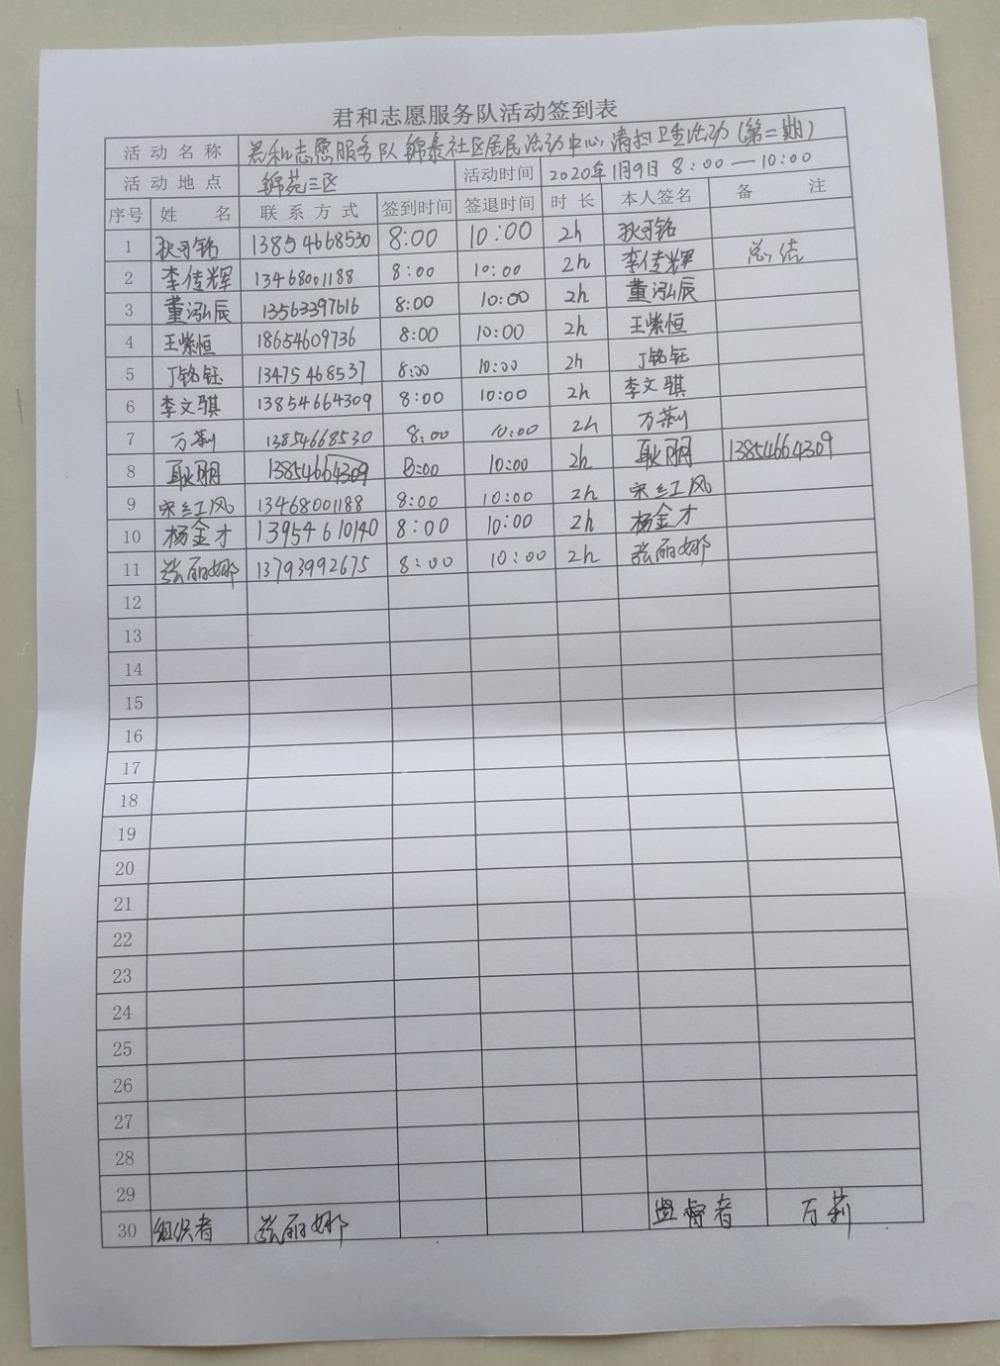 君和志愿服务队活动签到表
活动名称 君和志愿服务队锦泰社区居民活动中心清扫卫生活动(第二期)
活动地点 锦苑三区 活动时间 2020年1月9日 8:00—10:00
序号 姓名 联系方式 签到时间 签退时间 时长 本人签名 备注
1 狄可铭 13854668530 8:00 10:00 2h 狄可铭
2 李传辉 13468001188 8:00 10:00 2h 李传辉 总结
3 董泓辰 13563397616 8:00 10:00 2h 董泓辰
4 王紫恒 18654609736 8:00 10:00 2h 王紫恒
5 丁铭钰 13475468537 8:00 10:00 2h 丁铭钰
6 李文骐 13854664309 8:00 10:00 2h 李文骐
7 万莉 13854668530 8:00 10:00 2h 万莉
8 耿朋 13854664309 8:00 10:00 2h 耿朋 13854664309
9 宋红风 13468001188 8:00 10:00 2h 宋红风
10 杨金才 13954610140 8:00 10:00 2h 杨金才
11 张丽娜 13793992675 8:00 10:00 2h 张丽娜
12
13
14
15
16
17
18
19
20
21
22
23
24
25
26
27
28
29
30 组织者 张丽娜 监督者 万莉